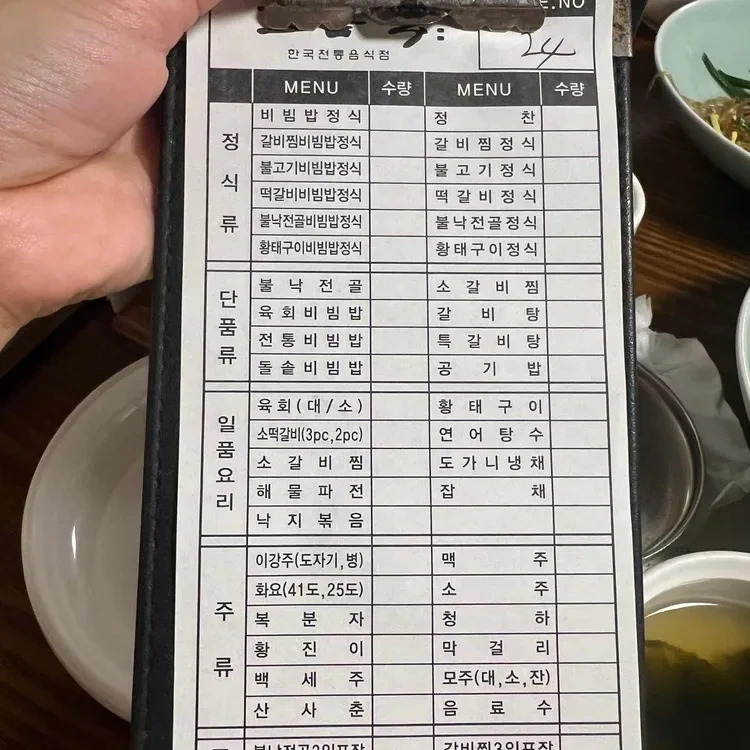 E.NO
24
한국전통음식점
MENU 수량 MENU 수량
정식류
비빔밥정식 정찬
갈비찜비빔밥정식 갈비찜정식
불고기비빔밥정식 불고기정식
떡갈비비빔밥정식 떡갈비정식
불낙전골비빔밥정식 불낙전골정식
황태구이비빔밥정식 황태구이정식
단품류
불낙전골 소갈비찜
육회비빔밥 갈비탕
전통비빔밥 특갈비탕
돌솥비빔밥 공기밥
일품요리
육회(대/소) 황태구이
소떡갈비(3pc,2pc) 연어탕수
소갈비찜 도가니냉채
해물파전 잡채
낙지볶음
주류
이강주(도자기,병) 맥주
화요(41도,25도) 소주
복분자 청하
황진이 막걸리
백세주 모주(대,소,잔)
산사춘 음료수
불낙전골2인포장 갈비찜3인포장